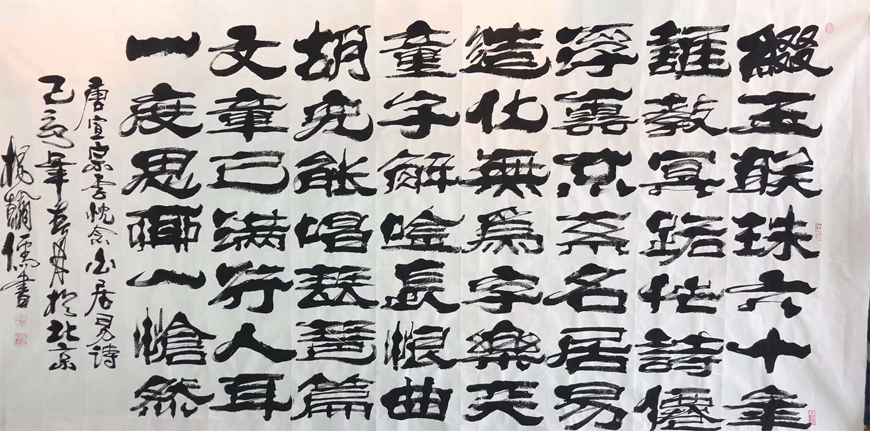 綴玉联珠六十年
誰教冥路作詩僊
浮雲不系名居易
造化無為字樂天
童子解吟長恨曲
胡兒能唱琵琶篇
文章已滿行人耳
一度思卿一愴然
唐宣宗李忱念白居易詩
己亥年春月於北京
楊翰儒書